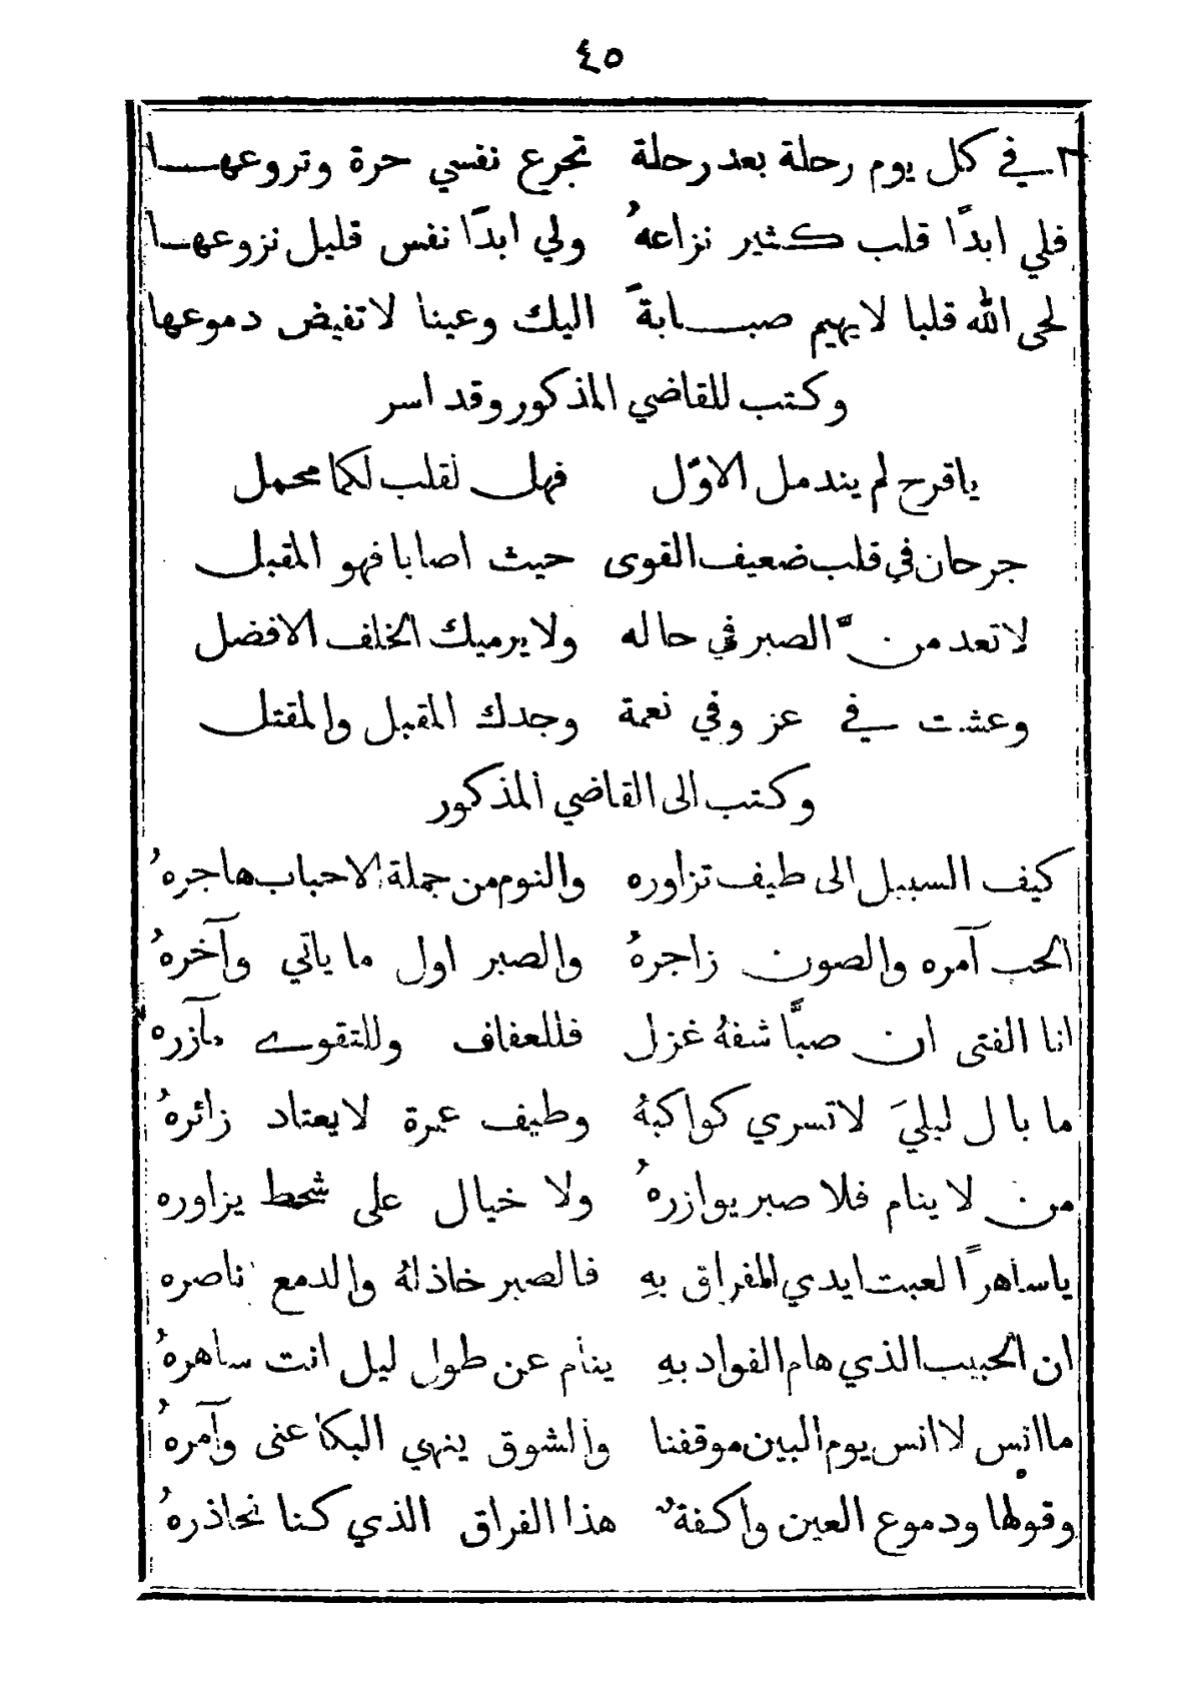 ٤٥
في كل يوم رحلة بعد رحلة تجرع نفسي حرة وتروعها
فلي ابدًا قلب كثير نزاعهُ ولي ابدًا نفس قليل نزوعها
لحى الله قلبا لا يهيم صبابةً اليك وعينا لا تفيض دموعها
وكتب للقاضي المذكور وقد اسر
يا قرح لم يندمل الاوّل فهل لقلب لكما محمل
جرحان في قلب ضعيف القوى حيث اصابا فهو المقبل
لا تعد من الصبر في حاله ولا يرميك الخلف الافضل
وعشت في عز وفي نعمة وجدك المقبل والمقتل
وكتب الى القاضي المذكور
كيف السبيل الى طيف تزاوره والنوم من جملة الاحباب هاجرهُ
الحب آمره والصون زاجرهُ والصبر اول ما ياتي وآخرهُ
انا الفتى ان صبًّا شفهُ غزل فللعفاف وللتقوے مآزره
ما بال ليليَ لا تسري كواكبهُ وطيف عمرة لا يعتاد زائرهُ
من لا ينام فلا صبر يوازرهُ ولا خيال على شحط يزاوره
يا ساهرًا لعبت ايدي الفراق بهِ فالصبر خاذلهُ والدمع ناصره
ان الحبيب الذي هام الفواد بهِ ينام عن طول ليل انت ساهرهُ
ما انس لا انس يوم البين موقفنا والشوق ينهي البكا عنى وآمرهُ
وقولها ودموع العين واكفة هذا الفراق الذي كنا نحاذرهُ